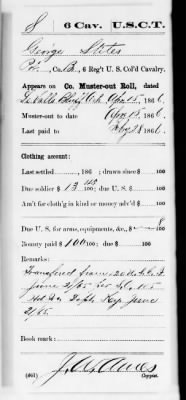 S | 6 Cav. | U.S.C.T.
George Stites
Pt., Co. B., 6 Reg't U. S. Col'd Cavalry.
Appears on Co. Muster-out Roll, dated
Bluff Ark Apr 15, 1866.
Muster-out to date Apr 15, 1866.
Last paid to 28, 1866.
Clothing account:
Last settled , 186 ; drawn since $ 100
Due soldier $ 13 100; due U. S. $ 100
Am't for cloth'g in kind or money adv'd $ 100
Due U. S. for arms, equipments, &c., $ 100
Bounty paid $ 100 100; due $ 100
Remarks:
Transferred from
June 2/65
June
2/65.
Book mark:
(861) Copyist.